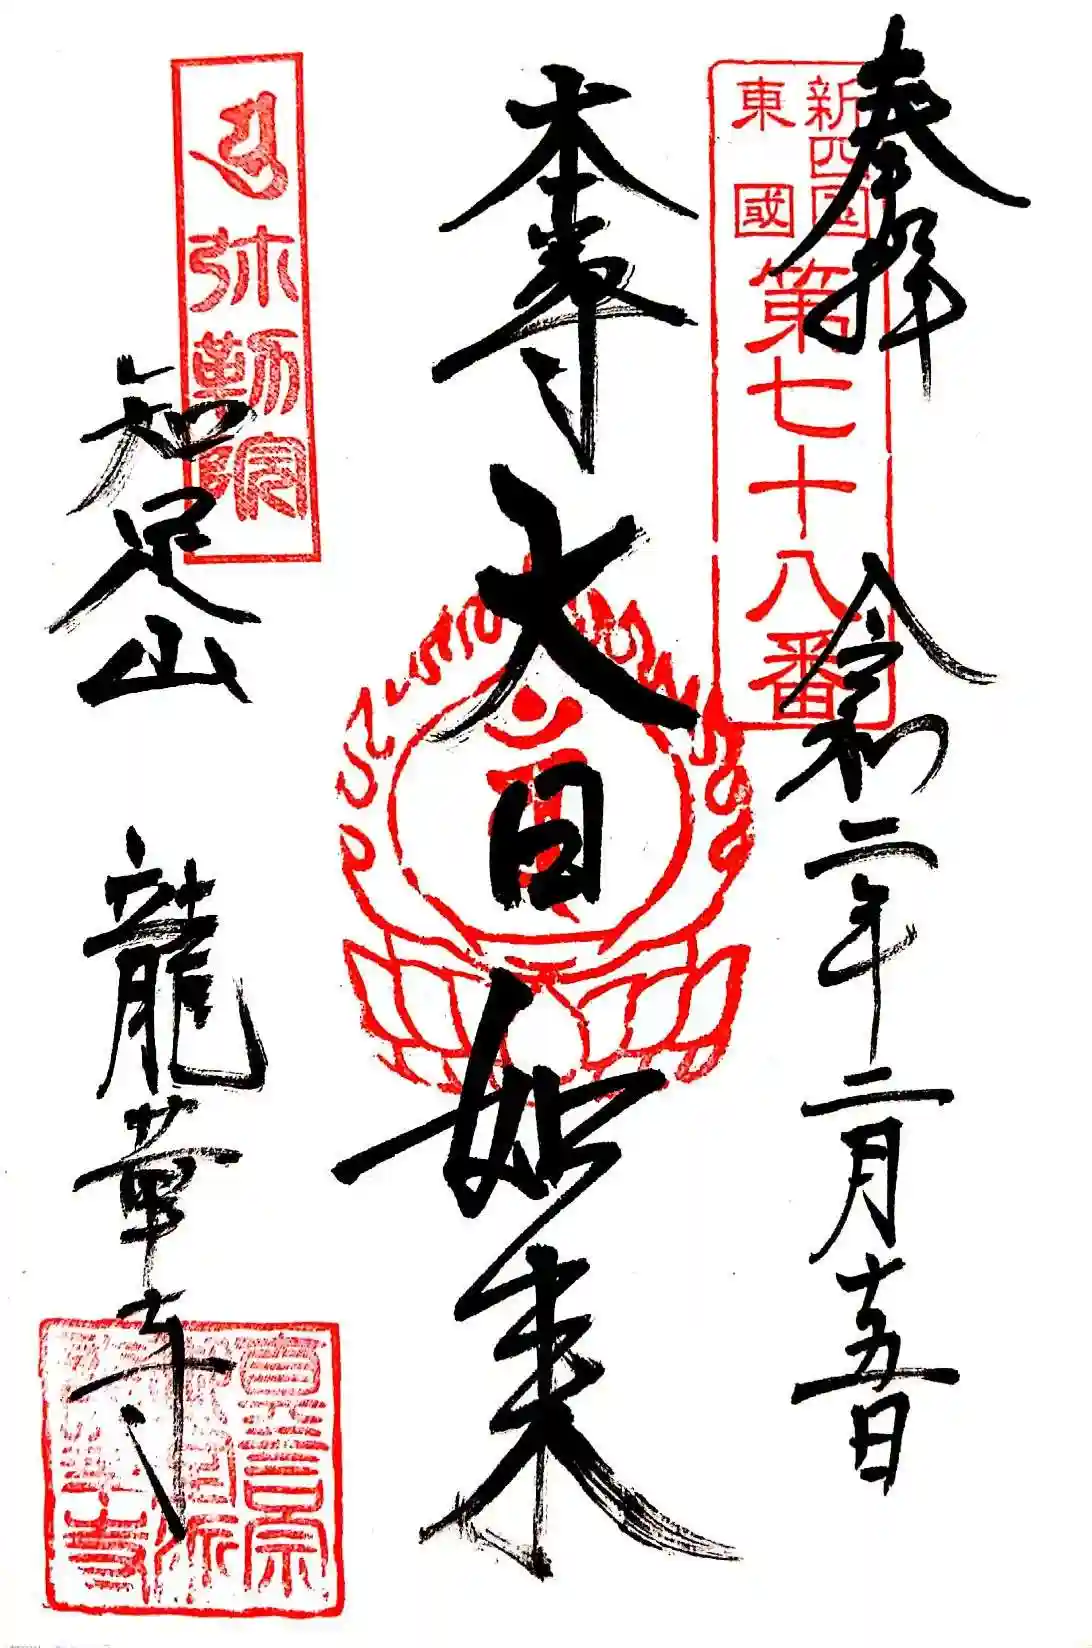 奉拝
令和二年二月十五日
新四国
東國
第七十八番
本尊
大日如来
弥勒院
知足山
龍華寺
真言宗
龍華寺